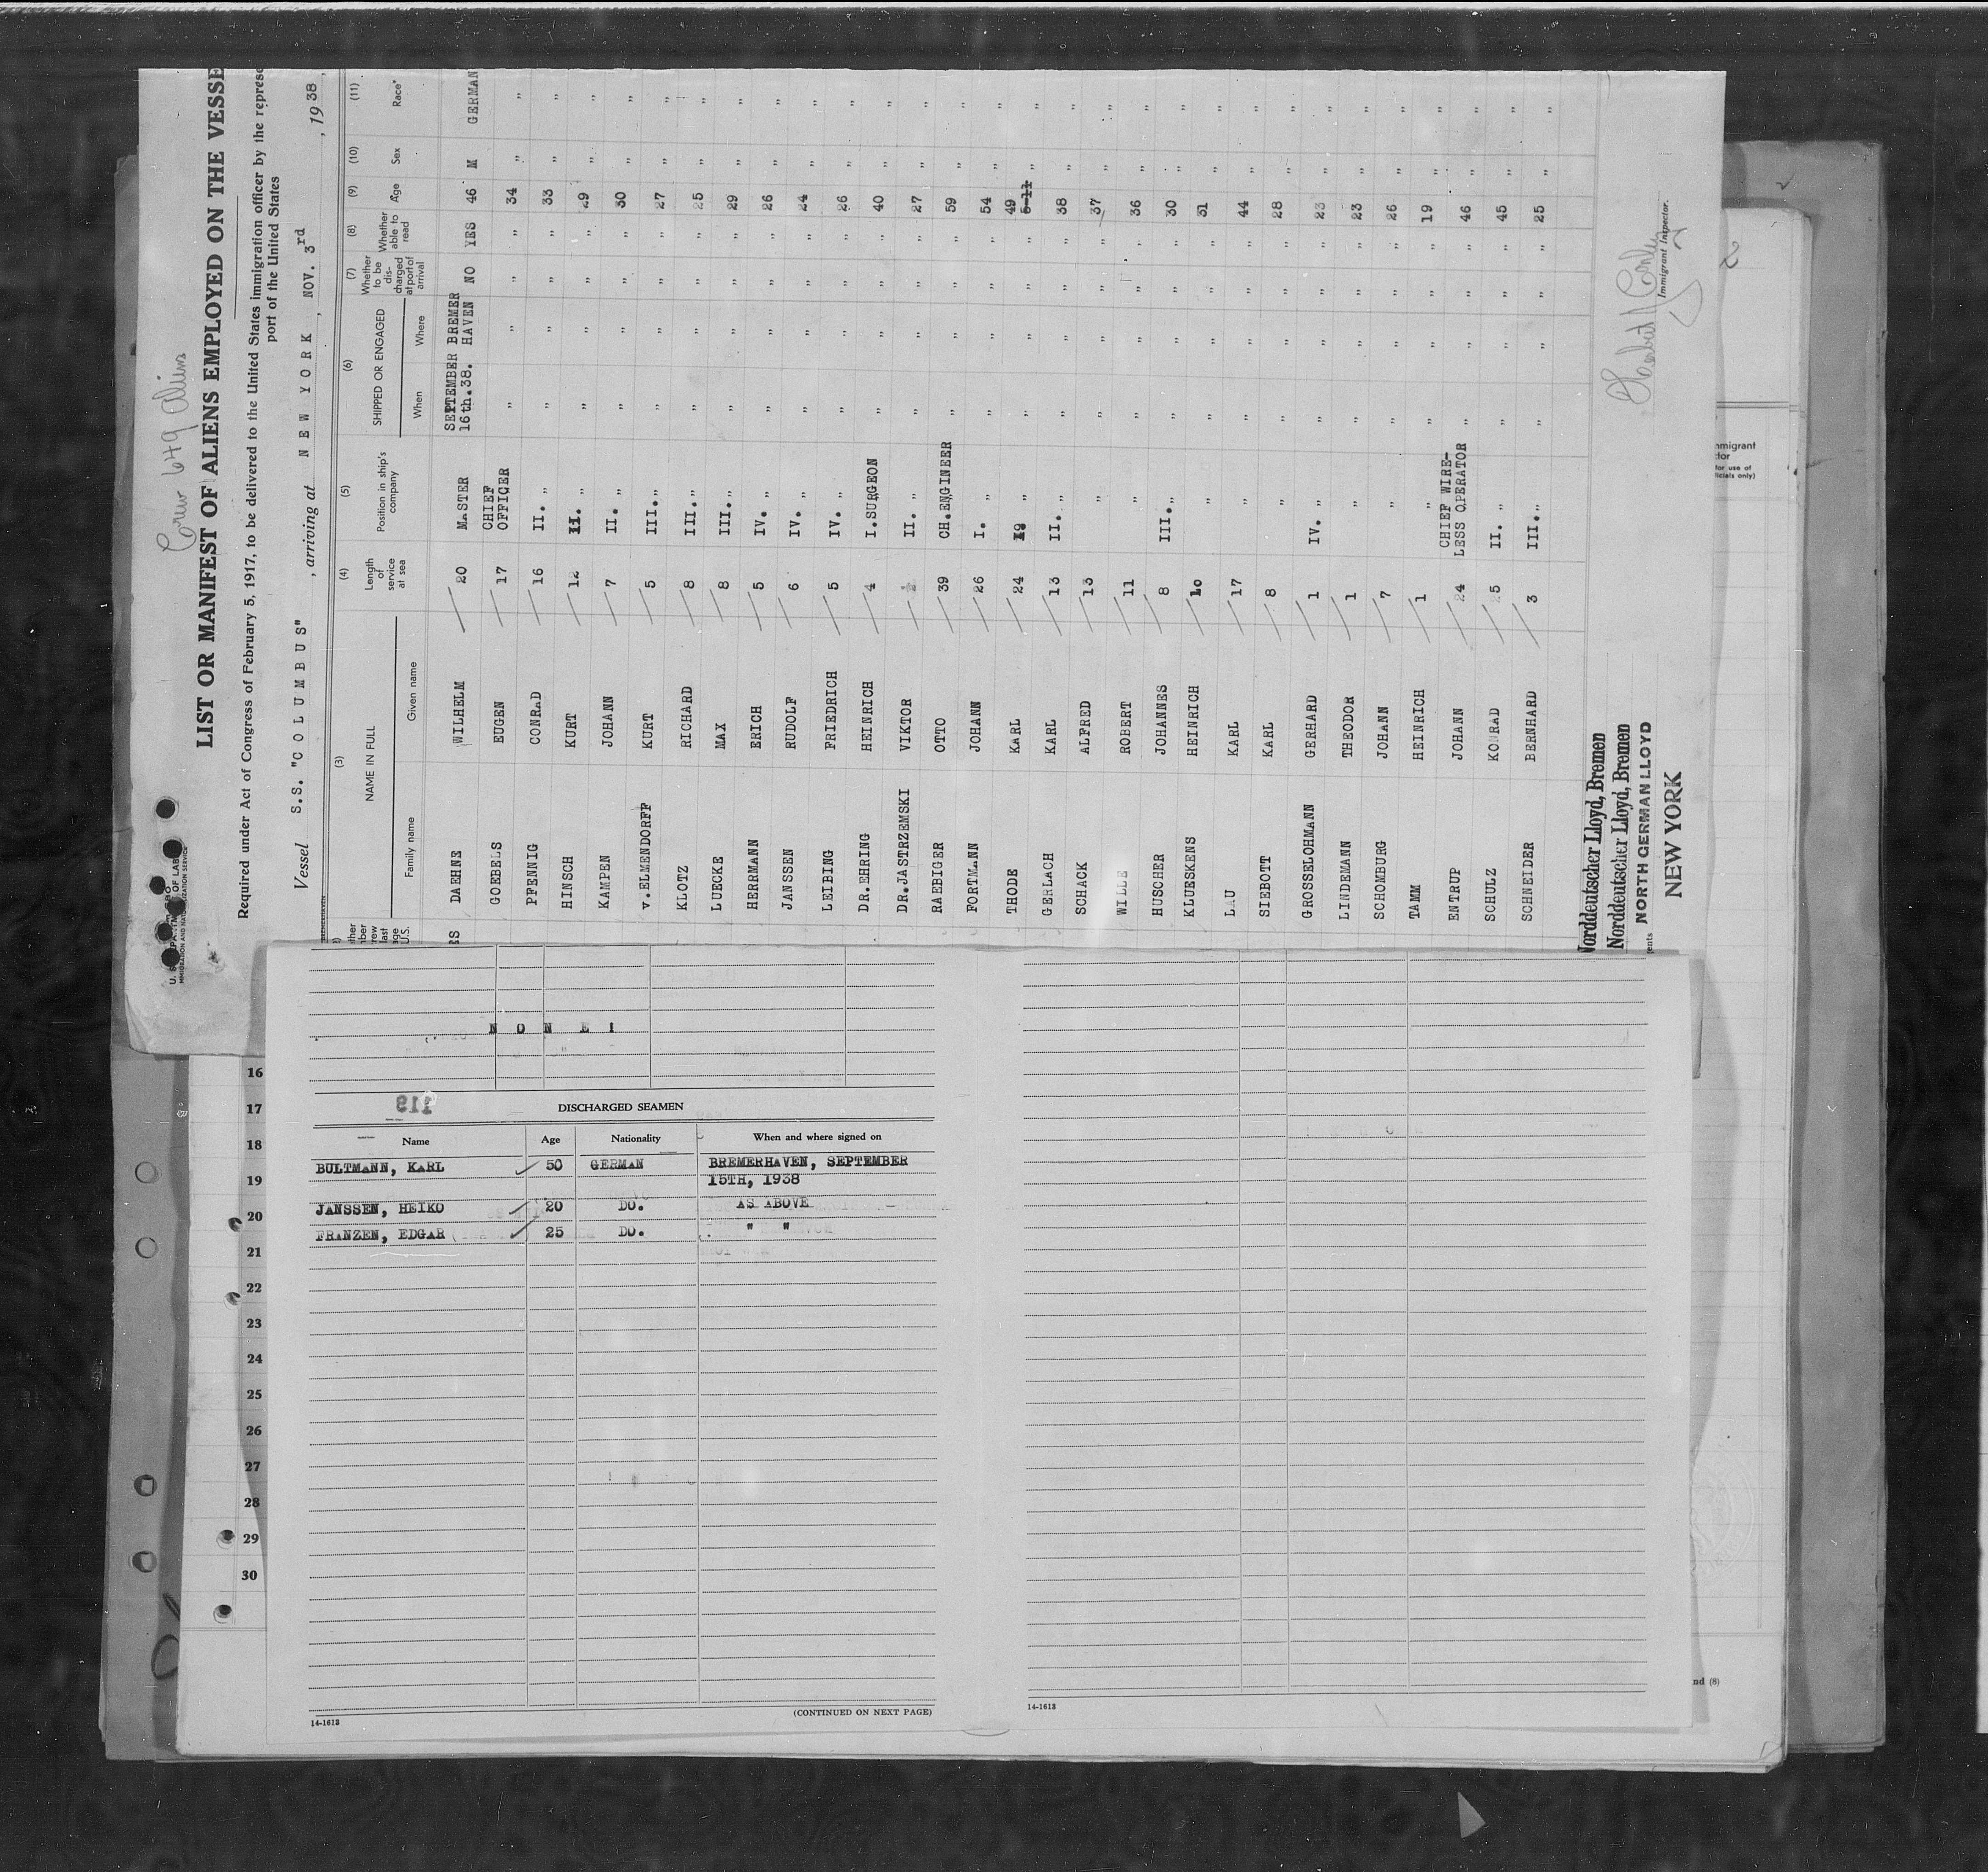 Crew 649 Aliens
LIST OR MANIFEST OF ALIENS EMPLOYED ON THE VESSE
Required under Act of Congress of February 5, 1917, to be delivered to the United States immigration officer by the represe
port of the United States
Vessel S.S. "COLUMBUS" , arriving at NEW YORK , NOV. 3rd , 1938
(3) (4) (5) (6) (7) (8) (9) (10) (11)
NAME IN FULL Length of service at sea Position in ship's company SHIPPED OR ENGAGED Whether to be discharged at port of arrival Whether able to read Age Sex Race*
Family name Given name When Where
DAEHNE WILHELM 20 MASTER SEPTEMBER 16th.38. BREMER HAVEN NO YES 46 M GERMAN
GOEBELS EUGEN 17 CHIEF OFFICER " " " " 34 " "
PFENNIG CONRAD 16 II. " " " " " 33 " "
HINSCH KURT 12 II. " " " " " 29 " "
KAMPEN JOHANN 7 II. " " " " " 30 " "
v.ELMENDORFF KURT 5 III. " " " " " 27 " "
KLOTZ RICHARD 8 III. " " " " " 25 " "
LUECKE MAX 8 III. " " " " " 29 " "
HERRMANN ERICH 5 IV. " " " " " 26 " "
JANSSEN RUDOLF 6 IV. " " " " " 24 " "
LEIBING FRIEDRICH 5 IV. " " " " " 26 " "
DR.EHRING HEINRICH 4 I.SURGEON " " " " 40 " "
DR.JASTRZEMSKI VIKTOR II. " " " " " 27 " "
RAEBIGER OTTO 39 CH.ENGINEER " " " " 59 " "
FORTMANN JOHANN 26 I. " " " " " 54 " "
THODE KARL 24 " " " " " 49 " "
GERLACH KARL 13 II. " " " " " 38 " "
SCHACK ALFRED 13 " " " " " 37 " "
WILLE ROBERT 11 " " " " " 36 " "
HUSCHER JOHANNES 8 III. " " " " " 30 " "
KLUESKENS HEINRICH 10 " " " " " 31 " "
LAU KARL 17 " " " " " 44 " "
SIEBOTT KARL 8 " " " " " 28 " "
GROSSELOHMANN GERHARD 1 IV. " " " " " 23 " "
LINDEMANN THEODOR 1 " " " " " 23 " "
SCHOMBURG JOHANN 7 " " " " " 26 " "
TAMM HEINRICH 1 " " " " " 19 " "
ENTRUP JOHANN 24 CHIEF WIRE-LESS OPERATOR " " " " 46 " "
SCHULZ KONRAD 25 II. " " " " " 45 " "
SCHNEIDER BERNHARD 3 III. " " " " " 25 " "
Norddeutscher Lloyd, Bremen
Norddeutscher Lloyd, Bremen
NORTH GERMAN LLOYD
NEW YORK
Immigrant Inspector.
NONE!
DISCHARGED SEAMEN
Name Age Nationality When and where signed on
BULTMANN, KARL 50 GERMAN BREMERHAVEN, SEPTEMBER
15TH, 1938
JANSSEN, HEIKO 20 DO. AS ABOVE
FRANZEN, EDGAR 25 DO. " "
(CONTINUED ON NEXT PAGE)
14-1613
14-1613
16
17
18
19
20
21
22
23
24
25
26
27
28
29
30
nd (8)